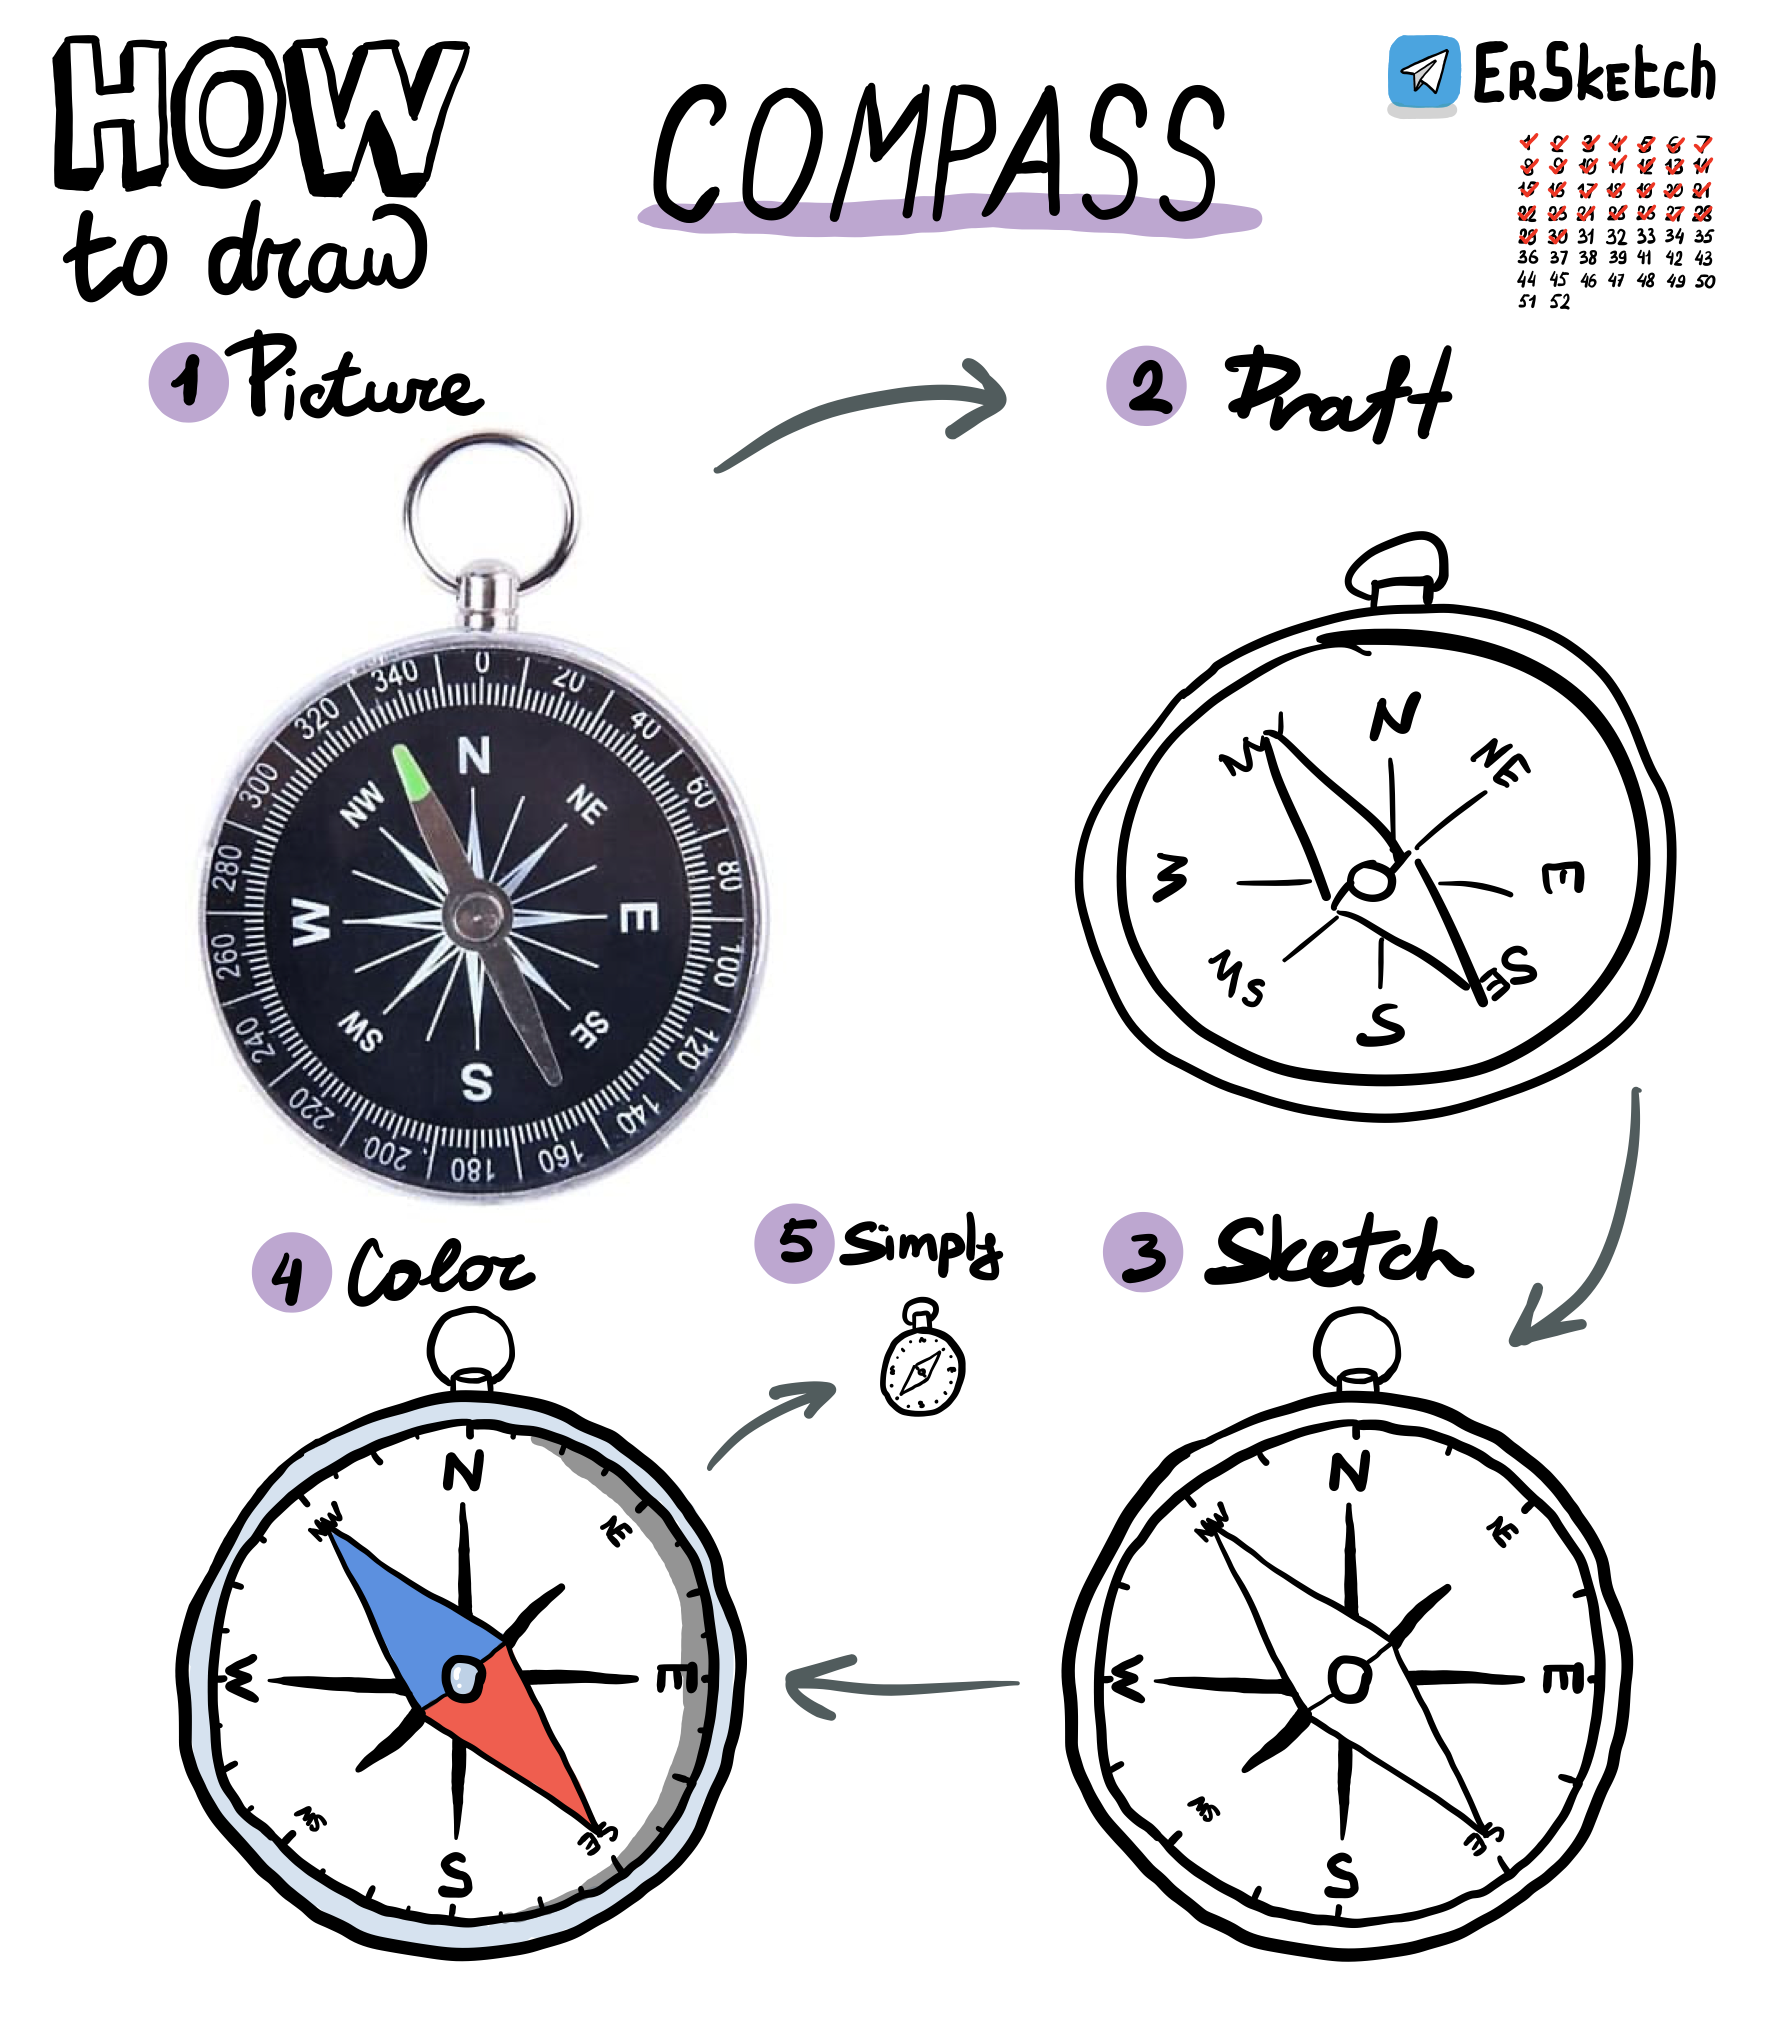 HOW
to draw
COMPASS
ErSketch
1 2 3 4 5 6 7
8 9 10 11 12 13 14
15 16 17 18 19 20 21
22 23 24 25 26 27 28
29 30 31 32 33 34 35
36 37 38 39 41 42 43
44 45 46 47 48 49 50
51 52
1 Picture
0 20 40 60 80 100 120 140 160 180 200 220 240 260 280 300 320 340
N NE E SE S SW W NW
2 Draft
N NE E SE S
3 Sketch
N NE E SE S W NW
4 Color
N NE E SE S W NW
5 Simply